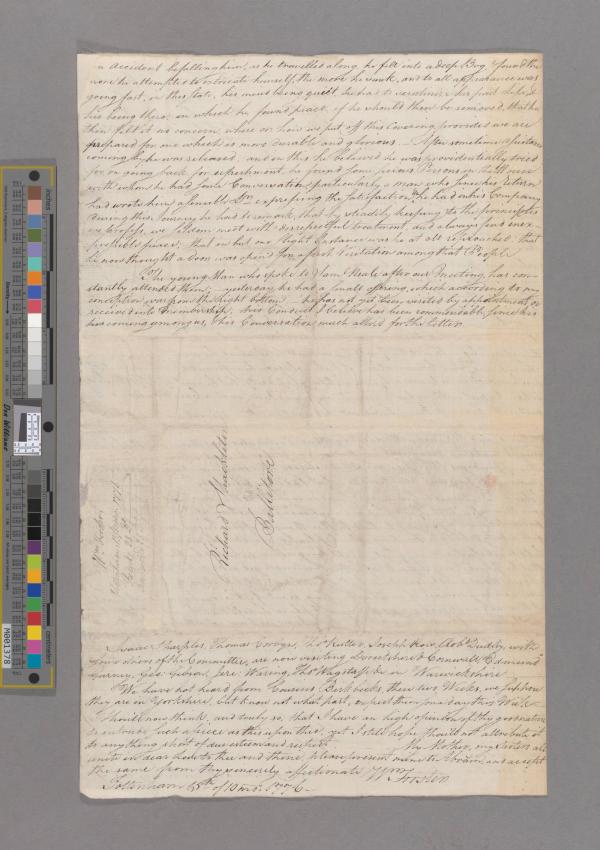 an Accident befalling him, as he travelled along, he fell into a deep Bog, & found the
more he attempted to extricate himself, the more he sunk, and to all appearance was
going fast, in this state, his mind being quiet he had to his past life, &
his being there, in which he found peace, if he should then be removed, that he
then felt it no concern where or how we put off this covering provided we are
prepared for one which is more durable and glorious — After some time assistance
coming by he was released, and on this he believed he was providentially
for on going back for refreshment, he found some pious Persons in the House
with whom he had some Conversation, particularly a man who since his return
had wrote him a few lines expressing the satisfaction he had in his Company
during this Journey he had to remark, that by steadily keeping to the principles
we profess, we seldom meet with disrespectful treatment, and always find
peace, that in but one slight Instance was he at all that
he now thought a Door was open'd for a visit among that People
The young Man who spoke to Sam Neale after our Meeting, has con-
stantly attended them; yesterday he had a small offering, which according to my
conception was from the right bottom — he has not yet been visited by appointment, or
received into Membership, his Conduct I believe has been commendable since his
coming among us, this Conversation much alter'd for the better
Richard Shackleton
Ballitore
Isaac Sharples, Thomas Corbyn, Thos Rutter, Joseph Row, Robt Dudley, with
some others of the Committee, are now visiting Devonshire & Cornwall, Edmund
Gurney, Jere: Waring, Thos Wagstaff &c in Warwickshire
We have not heard from Cousins Birkbecks these two Weeks, we suppose
they are in Yorkshire, but know not what part, expect them home this Week
I should now think, and surely so, that I have an high opinion of thy goodnature
to such a piece as this upon thee, yet I still hope thou'll not attribute it
to anything short of due esteem and respect My Mother, my Sisters all
unite in dear love to thee and thine, please present mine to Abraham and accept
the same from thy sincerely affectionate Wm Forster
Tottenham of 10 mo: